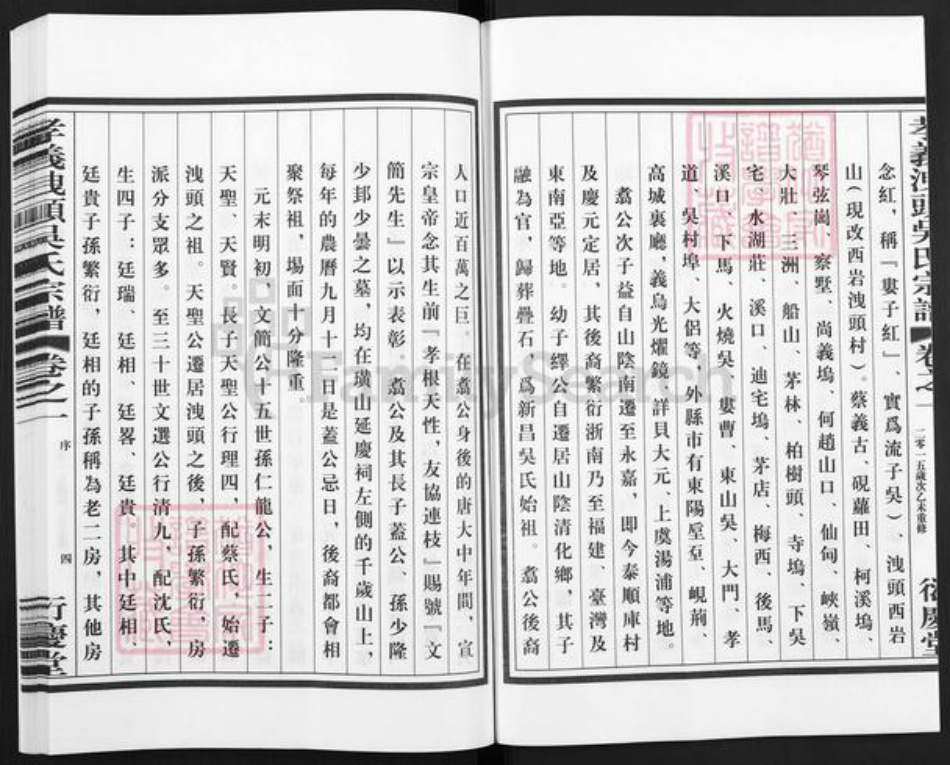 孝義洩頭吳氏宗譜 卷之一 二零一五歲次乙未重修 衍慶堂
念紅，稱「婁子紅」、實爲流子吳）、洩頭西岩
山（現改西岩洩頭村）。蔡義古、硯蘿田、柯溪塢、
琴弦崗、察墅、尚義塢、何趙山口、仙甸、峽嶺、
大壯、三洲、船山、茅林、柏樹頭、寺塢、下吳
宅、水湖莊、溪口、迪宅塢、茅店、梅西、後馬、
溪口、下馬、火燒吳、婁曹、東山吳、大門、孝
道、吳村埠、大侶等、外縣市有東陽垕亙、峴荊、
高城裏廳，義烏光燿鏡、詳貝大元、上虞湯浦等地。
翥公次子益自山陰南遷至永嘉，即今泰順庫村
及慶元定居，其後裔繁衍浙南乃至福建、臺灣及
東南亞等地。幼子繹公自遷居山陰清化鄉，其子
融為官，歸葬疊石，爲新昌吳氏始祖。翥公後裔
人口近百萬之巨。在翥公身後的唐大中年間，宣
宗皇帝念其生前「孝根天性，友協連枝」賜號「文
簡先生」以示表彰。翥公及其長子蓋公、孫少隆
少邽少曇之墓，均在璜山延慶祠左側的千歲山上，
每年的農曆九月十二日是蓋公忌日，後裔都會相
聚祭祖，場面十分隆重。
元末明初，文簡公十五世孫仁龍公，生二子：
天聖、天賢。長子天聖公行理四，配蔡氏，始遷
洩頭之祖。天聖公遷居洩頭之後，子孫繁衍，房
派分支眾多。至三十世文選公行清九，配沈氏、
生四子：廷瑞、廷相、廷畧、廷貴。其中廷相、
廷貴子孫繁衍，廷相的子孫稱為老二房，其他房
孝義洩頭吳氏宗譜 卷之一 序 四 衍慶堂
FamilySearch